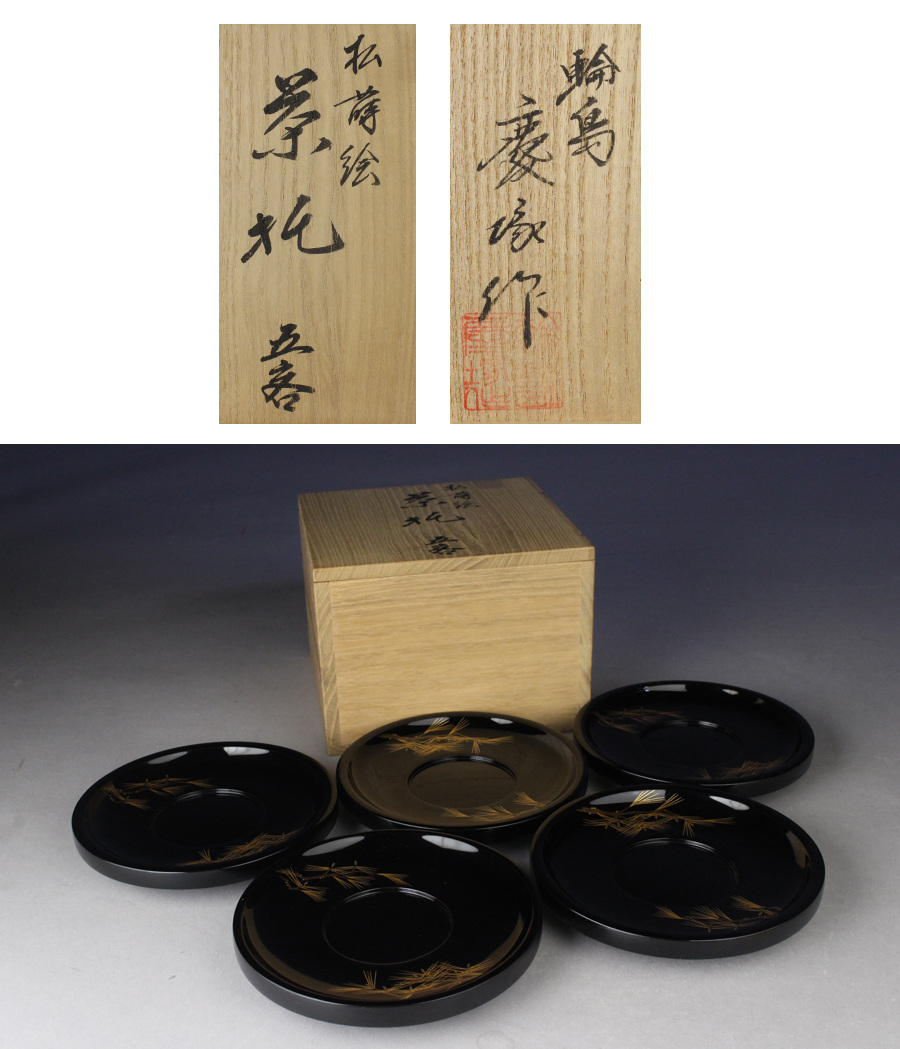 松蒔絵
茶托
五客
輪島
慶塚作
松蒔絵
茶托
五客